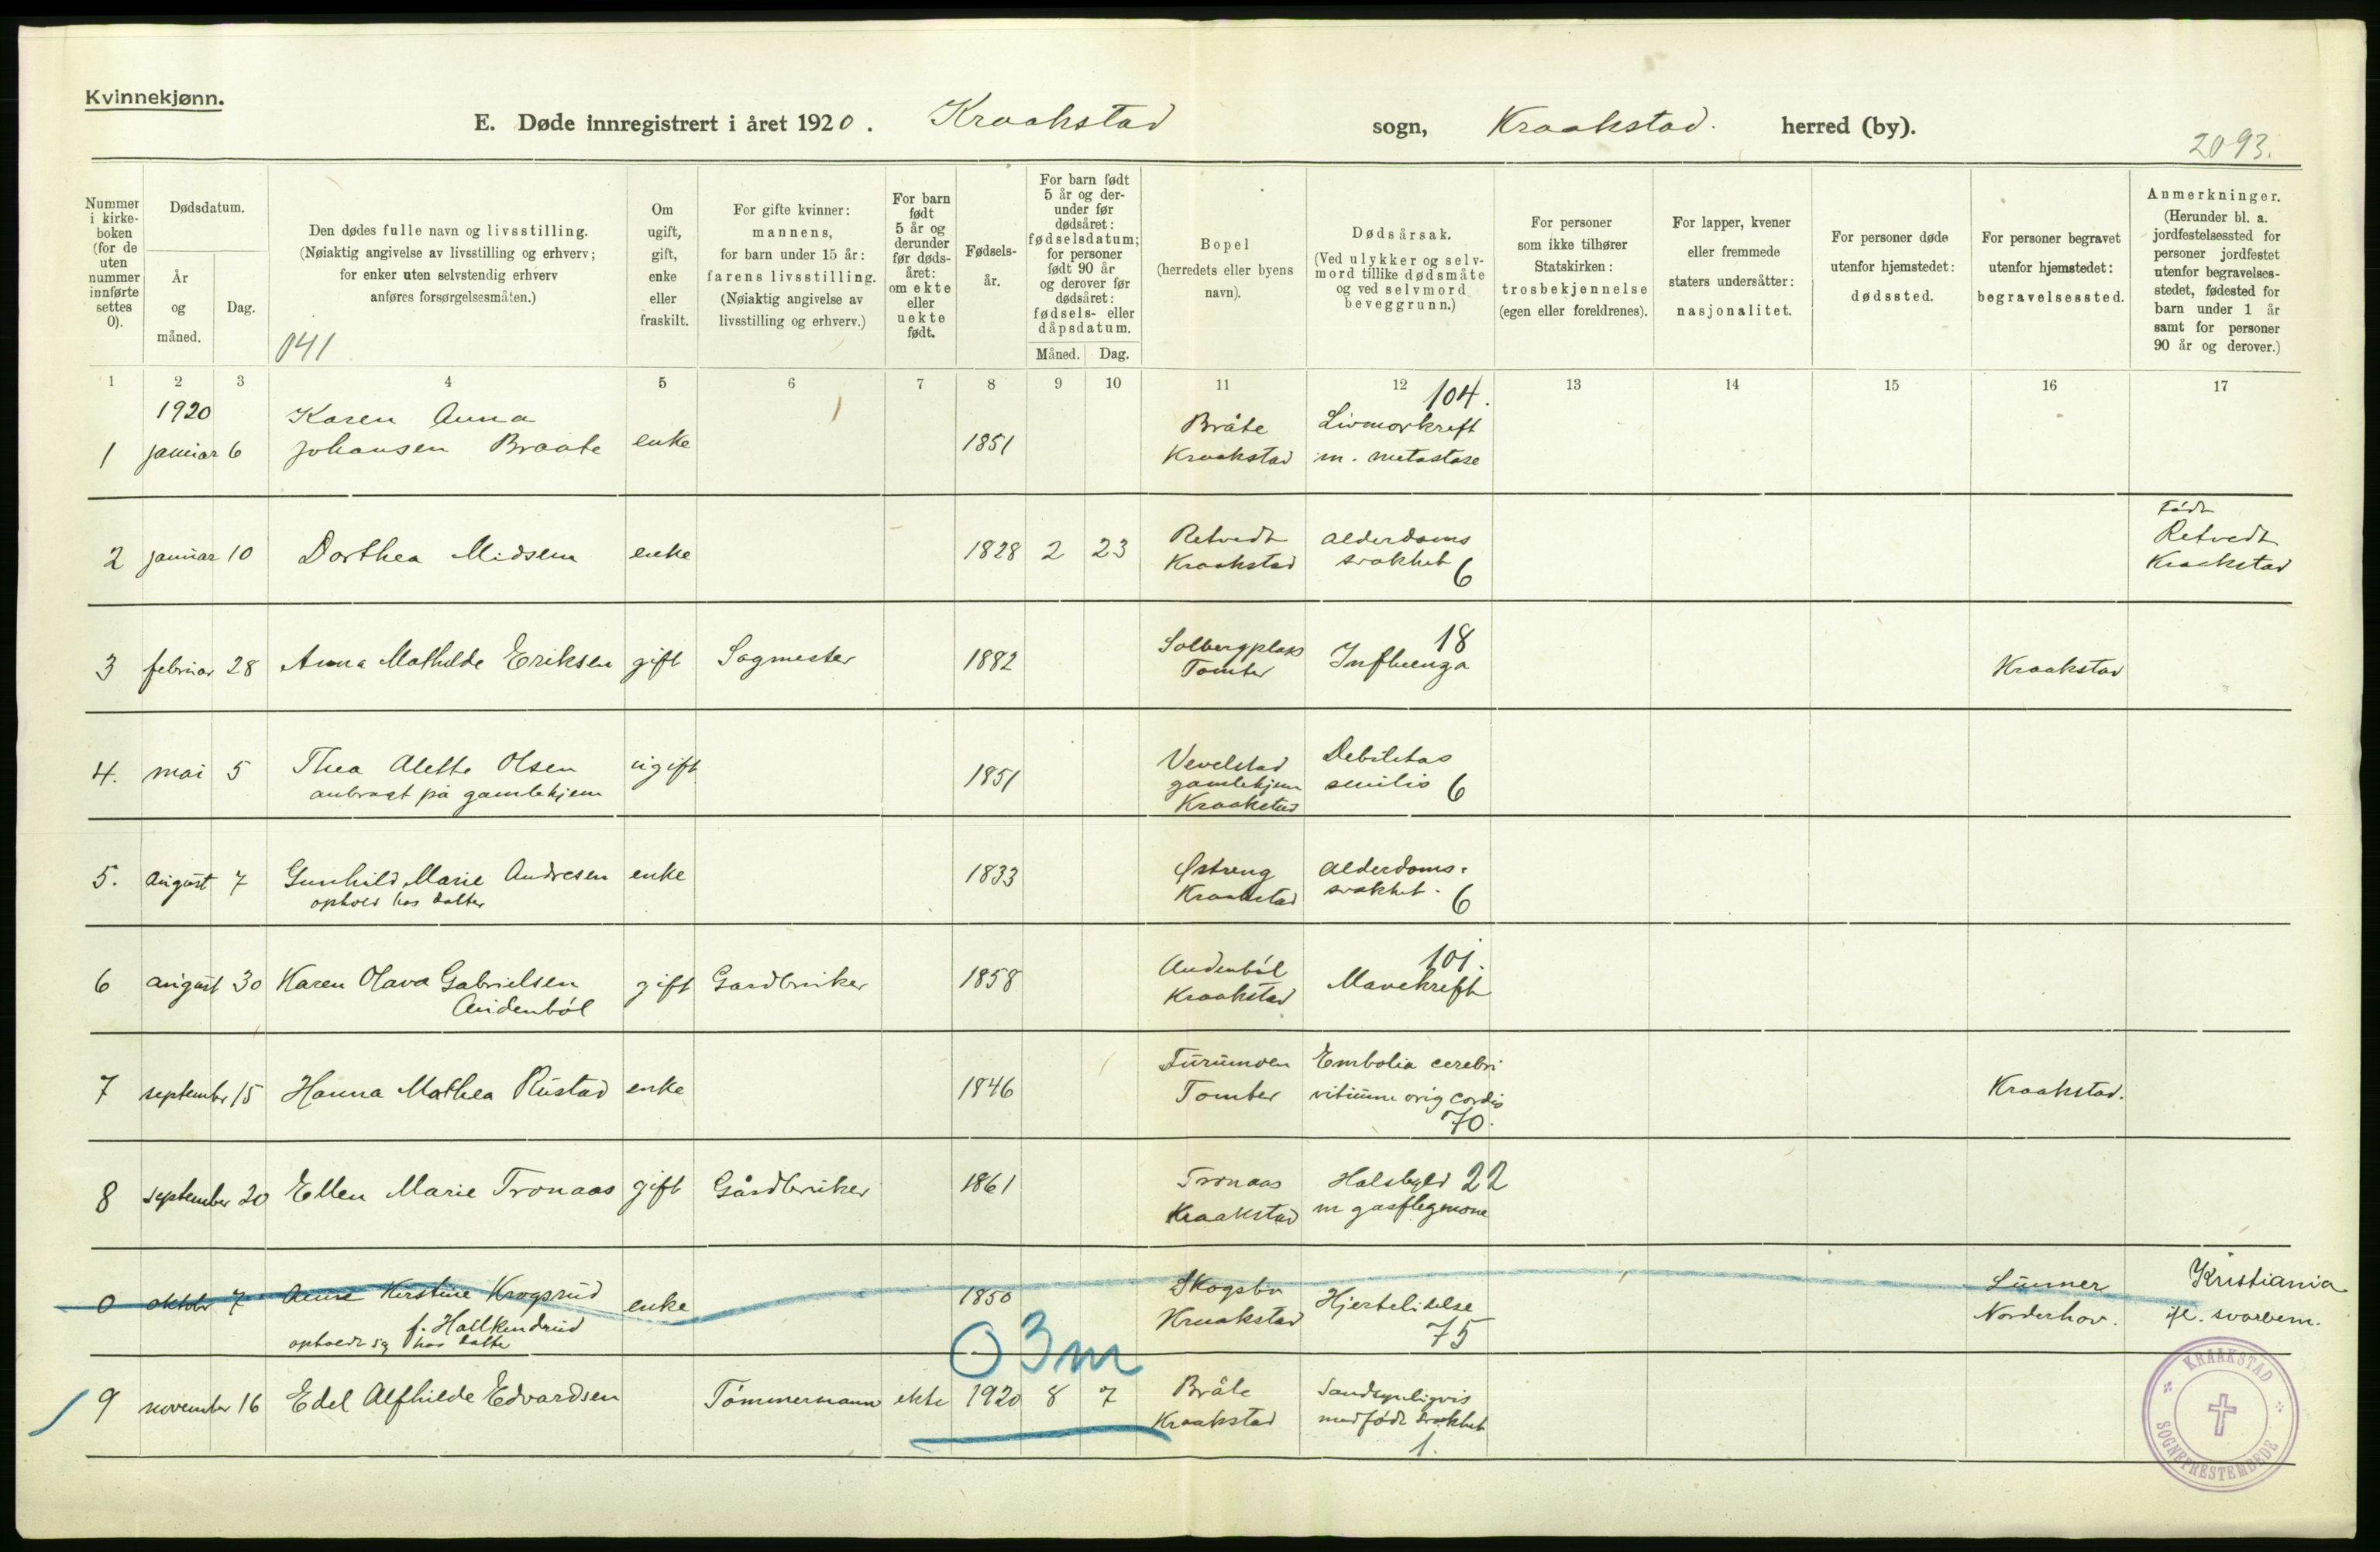 Kvinnekjønn.
E. Døde innregistrert i året 1920. Kraakstad sogn, Kraakstad. herred (by).
2093.
Nummer i kirkeboken (for de uten nummer innførte settes 0).
Dødsdatum.
År og måned.
Dag.
Den dødes fulle navn og livsstilling.
(Nøiaktig angivelse av livsstilling og erhverv;
for enker uten selvstendig erhverv
anføres forsørgelsesmåten.)
041
Om ugift, gift, enke eller fraskilt.
For gifte kvinner:
mannens,
for barn under 15 år:
farens livsstilling.
(Nøiaktig angivelse av
livsstilling og erhverv.)
For barn født 5 år og derunder før dødsåret: om ekte eller uekte født.
Fødselsår.
For barn født 5 år og derunder før dødsåret: fødselsdatum; for personer født 90 år og derover før dødsåret: fødsels- eller dåpsdatum.
Måned. Dag.
Bopel
(herredets eller byens
navn).
Dødsårsak.
(Ved ulykker og selvmord tillike dødsmåte
og ved selvmord
beveggrunn.)
For personer
som ikke tilhører
Statskirken:
trosbekjennelse
(egen eller foreldrenes).
For lapper, kvener
eller fremmede
staters undersåtter:
nasjonalitet.
For personer døde
utenfor hjemstedet:
dødssted.
For personer begravet
utenfor hjemstedet:
begravelsessted.
Anmerkninger.
(Herunder bl. a.
jordfestelsessted for
personer jordfestet
utenfor begravelsesstedet, fødested for
barn under 1 år
samt for personer
90 år og derover.)
1 2 3 4 5 6 7 8 9 10 11 12 13 14 15 16 17
1920 Karen Anna Bråte Livmorkreft 104.
1 januar 6 Johansen Braate enke 1851 Kraakstad m. metastase
Født
2 januar 10 Dorthea Midsem enke 1828 2 23 Retvedt Alderdoms Retvedt
Kraakstad svakhet 6 Kraakstad
3 februar 28 Anna Mathilde Eriksen gift Sagmester 1882 Solbergplass Influenza 18 Kraakstad
Tomter
4. mai 5 Thea Alette Olsen ugift 1851 Vevelstad Debilitas
anbragt på gamlehjem gamlehjem senilis 6
Kraakstad
5. august 7 Gunhild Marie Andresen enke 1833 Østreng Alderdoms-
ophold hos datter Kraakstad svakhet. 6
6 august 30 Karen Olava Gabrielsen gift Gardbruker 1858 Audenböl Mavekreft 101.
Audenböl Kraakstad
7 september 15 Hanna Mathea Rustad enke 1846 Furumoen Embolia cerebri Kraakstad.
Tomter vitium orig cordis
70.
8 september 20 Ellen Marie Tronaas gift Gårdbruker 1861 Tronaas Halsbyld 22
Kraakstad m gasflegmone
0 oktober 7 Anne Kirstine Krogsrud enke 1850 Skogsbo Hjertelidelse Lunner Kristiania
f. Hallkendrud Kraakstad 75 Norderhov. ifl. svarbem.
opholdt sig hos datter
0 3m
9 november 16 Edel Alfhilde Edvardsen Tömmermann ekte 1920 8 7 Bråte Sandsynligvis
Kraakstad medfödt svakhet
1.
KRAAKSTAD
SOGNEPRESTEMBEDE